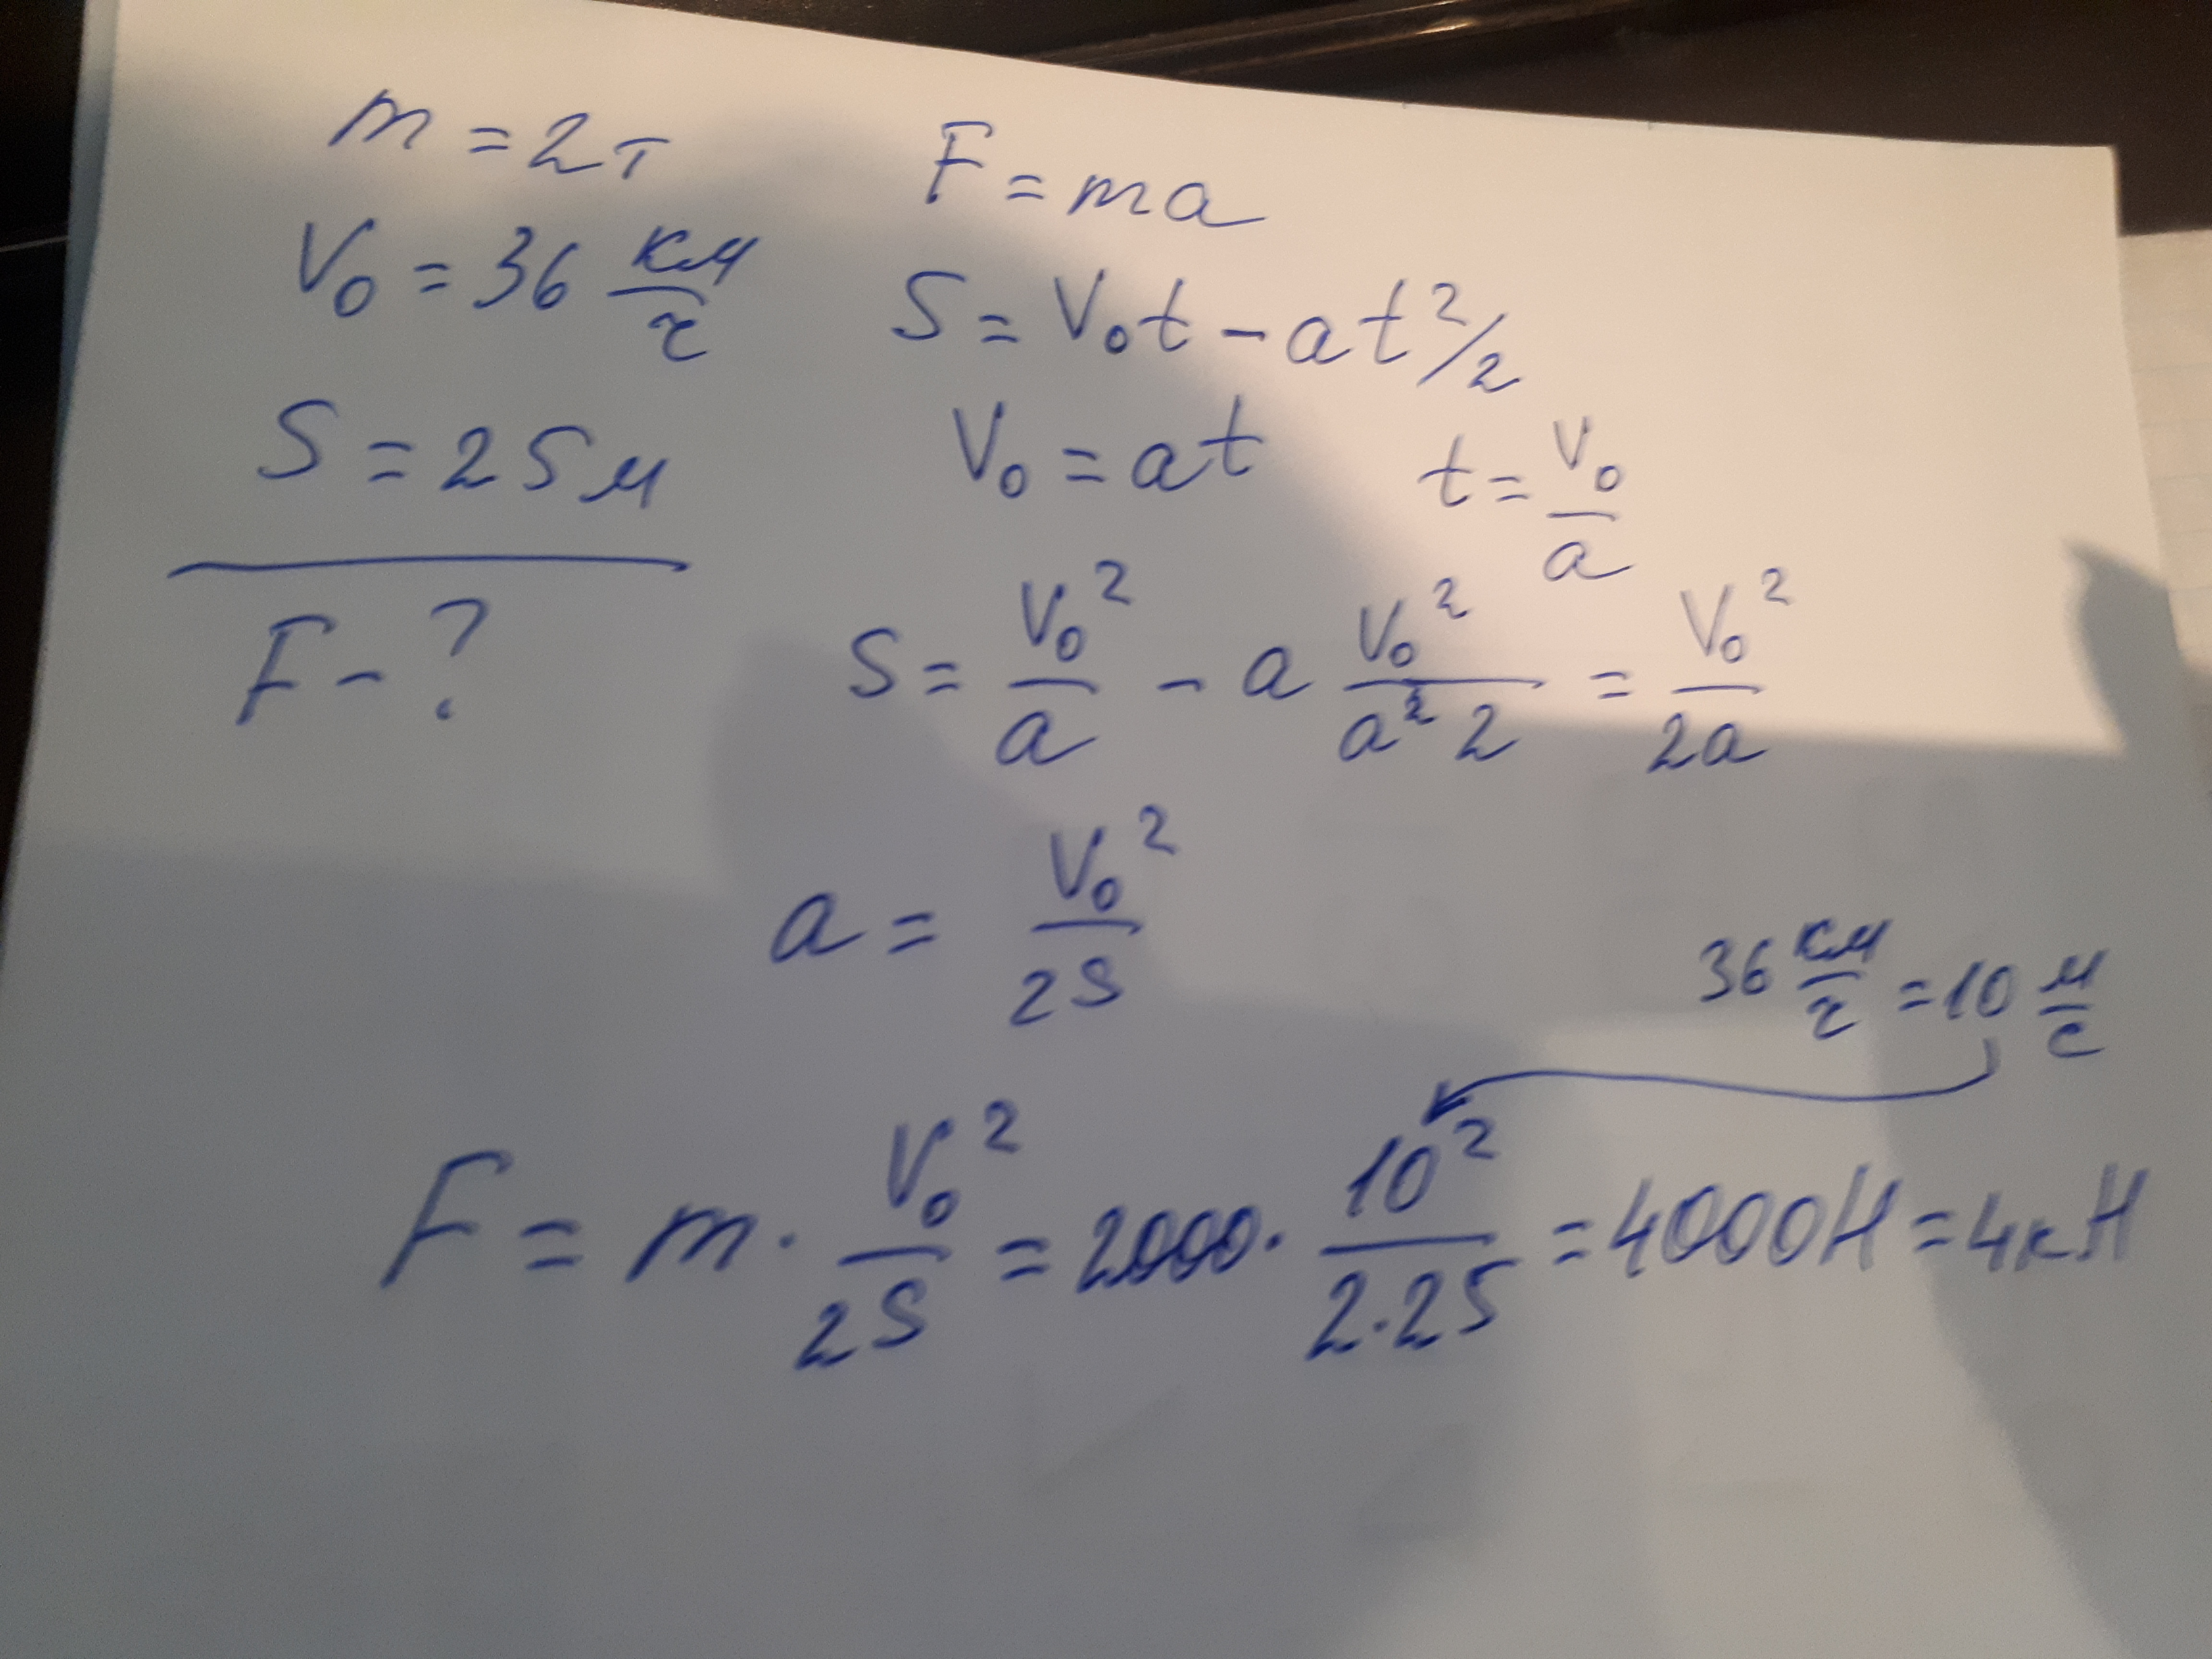 m = 2т
V₀ = 36 км/ч
S = 25м
F - ?
F = ma
S = V₀t - at²/2
V₀ = at t = V₀/a
S = V₀²/a - a V₀²/a²2 = V₀²/2a
a = V₀²/2S
36 км/ч = 10 м/с
F = m · V₀²/2S = 2000 · 10²/2·25 = 4000Н = 4кН